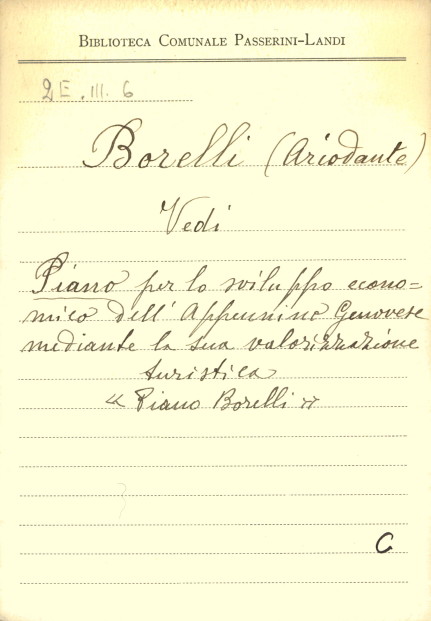 BIBLIOTECA COMUNALE PASSERINI-LANDI
2E. III. 6
Borelli (Ariodante)
Vedi
Piano per lo sviluppo econo=
mico dell' Appennino Genovese
mediante la sua valorizzazione
turistica
« Piano Borelli »
C